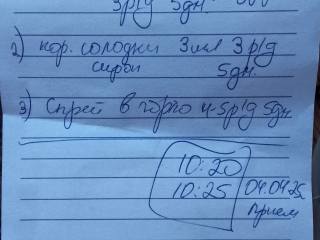 3р/д 5дн.
2) кор. солодки 3мл 3р/д
сироп 5дн.
3) Спрей в горло 4-5р/д 5дн.
10:20
10:25 04.04.25
прием